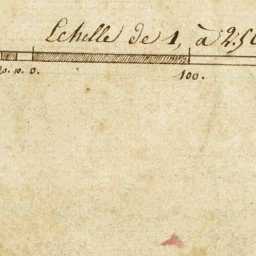 Echelle de 1, à 2.5
0. 100.